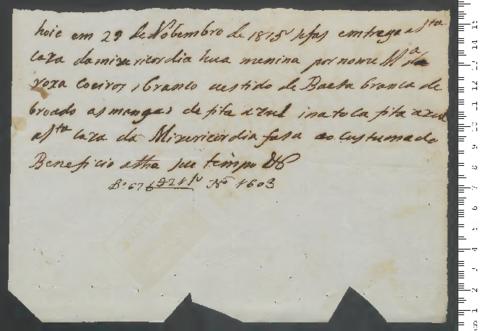 hoie em 29 de Novembro de 1815 se fas emtrega a Sta
caza da mizericordia hua menina por nome Ma da
roza Coeiros, branco vestido de Baeta branca de
broado as mangas de fita azul i na toca fita azul
a Sta Caza da Mizericordia fasa o Custumado
Beneficio athe seu tempo &
No 1603